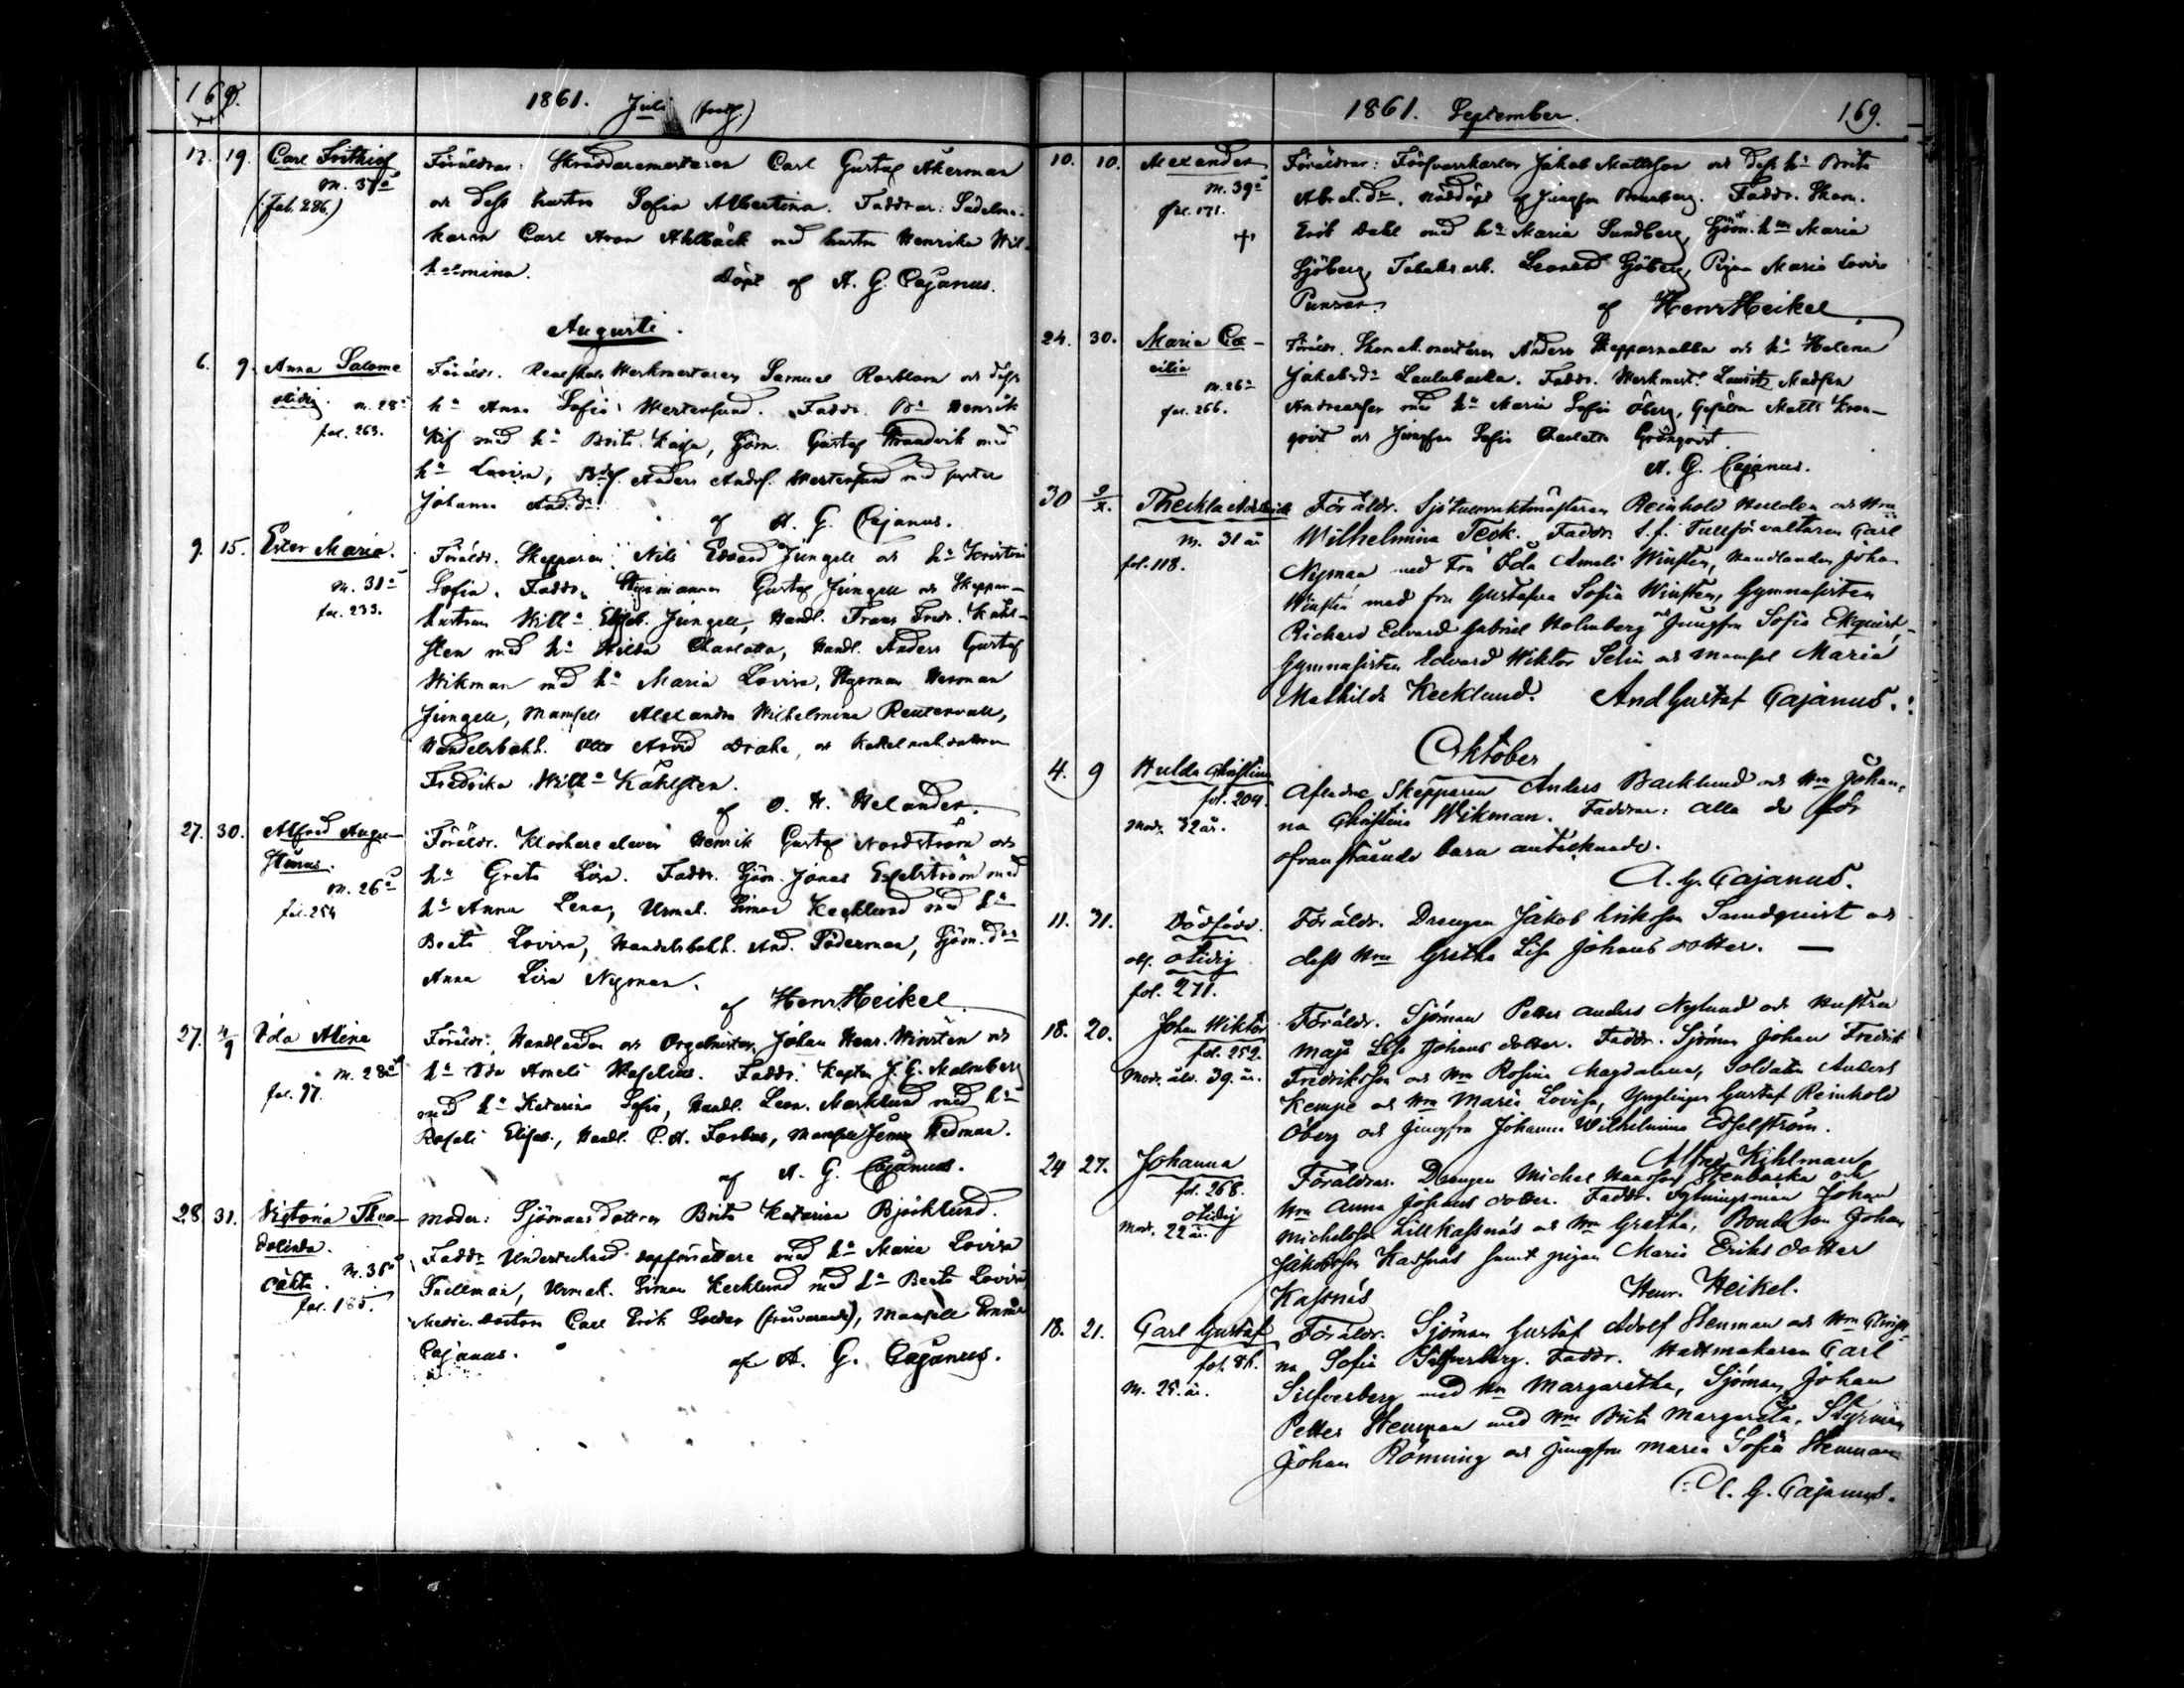 169.
1861. Juli (forts.)
17. 19. Carl Frithiof Föräldrar: Skräddaremästaren Carl Gustaf Åkerman
M. 37 å
(fol. 286.)
och dess hustru Sofia Albertina. Faddrar: Sadelma-
karen Carl Aron Ahlbäck med hustru Henrika Wil-
helmina. Döpt af A. G. Cajanus.
Augusti.
6. 9. Anna Salome Föräldr. Werkmästaren Samuel och dess
otidig. M. 28 å
fol. 263.
hu Anna Sofia Westersund. Faddr. Henrik
med hu Brita Kajsa, Sjöm. Gustaf Strandvik med
hu Lovisa, Anders Anders. Westersund med syster
Johanna And.dr.
af A. G. Cajanus.
9. 15. Ester Maria. Föräldr. Skepparen Nils Edvard Jungell och hu Kristina
M. 31 å
fol. 233.
Sofia. Faddr. Styrmannen Gustaf Jungell och Skeppar-
hustrun Willa Elisab. Jungell, Handl. Frans Fredr. Kåhl-
sten med hu Hilda Charlotta, Handl. Anders Gustaf
Wikman med hu Maria Lovisa, Styrman Herman
Jungell, Mamsell Alexandra Wilhelmina Reuterwall,
Handelsbokh. Otto Arvid Drake, och
Fredrika Willa Kåhlsten.
af O. H. Helander.
27. 30. Alfred Augu-
stinus.
M. 26 å
fol. 254
Föräldr. Klockare eleven Henrik Gustaf Nordström och
hu Greta Lisa. Faddr. Sjöm. Jonas Esselström med
hu Anna Lena, Urmak. Simon Kecklund med hu
Beata Lovisa, Handelsbokh. And. Söderman, Sjöm. dr
Anna Lisa Nyman.
af Henr. Heikel
27. 4/9 Ida Alina Föräldr. Handlanden och Orgelnisten Johan Henr. Winstén och
M. 28 å
fol. 97.
hu Ida Ameli Waselius. Faddr. Kapten J. G. Malmberg
med hu Katarina Sofia, Handl. Leon. Marklund med hu
Rosali Elisab., Handl. C. A. Forbus, Mamsell Jenny Hedman.
af A. G. Cajanus.
28 31. Victoria Theo-
dolinda.
M. 36 å
oäkta.
fol. 185.
Moder: Sjömansdottren Brita Katarina Björklund.
Faddr. Undertecknad dopförrättare med hu Maria Lovisa
Snellman, Urmak. Simon Kecklund med hu Beata Lovisa,
Medic. doctorn Carl Erik (frånvarande), Mamsell Emma
Cajanus. af A. G. Cajanus.
1861. September. 169.
10. 10. Alexander Föräldrar: Försvarskarlen Jakob Mattsson och dess hu Brita
M. 39 å
fol. 171.
+
Abrah. dr. Nöddöpt af Jungfru. Faddr. Skom.
Erik Dahl med hu Maria Sundberg, Sjöm. hun Maria
Sjöberg, Tobaksarb. Leonard Sjöberg, Pigan Maria Lovisa
af Henr. Heikel
24. 30. Maria Cæ-
cilia
M. 26 å
fol. 266.
Föräldr. Skomak. mästaren Anders Skepparnabba och hu Helena
Jakobsdr Laulubacka. Faddr. Werkmäst. Laurits Madsen
Andreasen med hu Maria Sofia Öberg, Gesällen Matts Kron-
qvist och Jungfrun Sofia Charlotta Grönqvist.
A. G. Cajanus.
30 9/X. Theckla Föräldr. Sjötullvaktmästaren Reinhold och Hun
M. 31 år
fol. 118.
Wilhelmina Tesk. Faddr. t.f. Tullförvaltaren Carl
Nyman med Fru Ida Ameli Winstén, Handlanden Johan
Winstén med fru Gustafva Sofia Winstén, Gymnasisten
Richard Edvard Gabriel Holmberg och Jungfru Sofia Ekquist,
Gymnasisten Edvard Wiktor Selin och Mamsel Maria
Mathilda Kecklund. And Gustaf Cajanus.
Oktober
4. 9 Hulda Christina Aflidne Skepparen Anders Backlund och Hun Johan-
fol. 204.
Modr. 32 år.
na Christina Wikman. Faddrar: alla de för
ofvanstående barn antecknade.
A. G. Cajanus.
11. 31. Dödfödd. Föräldr. Drengen Jakob Eriksson Sundquist och
otidig
fol. 271.
dess Hun Gretha Lisa Johansdotter. —
18. 20. Johan Wiktor Föräldr. Sjöman Petter Anders Nylund och Hustru
fol. 252.
Mod. åld. 39. år.
Maja Lisa Johansdotter. Faddr. Sjöman Johan Fredrik
Fredriksson och Hun Rosina Magdalena, Soldaten Anders
Kempe och Hun Maria Lovisa, Ynglingen Gustaf Reinhold
Öberg och Jungfru Johanna Wilhelmina Esselström.
Alfred Kihlman
24 27. Johanna Föräldrar. Drengen Michel Hansson Stenbacka och
fol. 268.
otidig
Mod. 22 år.
Hun Anna Johansdotter. Faddr. Johan
Michelsson Lillkassnäs och Hun Gretha, Bondeson Johan
Jakobsson Kassnäs samt pigan Maria Eriksdotter
Kassnäs Henr. Heikel.
18. 21. Carl Gustaf Föräldr. Sjöman Gustaf Adolf Stenman och Hun Christi-
fol. 81.
M. 25. år.
na Sofia Silfverberg. Faddr. Hattmakaren Carl
Silfverberg med Hun Margaretha, Sjöman Johan
Petter Stenman med Hun Brita Margareta, Styrman
Johan Rönning och Jungfru Maria Sofia Stenman
A. G. Cajanus.